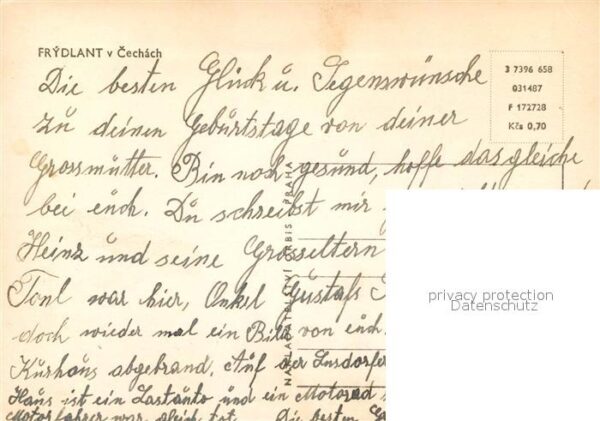 FRÝDLANT v Čechách
3 7396 658
031487
F 172728
Kčs 0,70
Die besten Glück u. Segenswünsche
zu deinen Geburtstage von deiner
Grossmutter. Bin noch gesund, hoffe das gleiche
bei euch. Du schreibst mir
Heinz und seine Grosseltern
Tonl war hier, Onkel Gustafs
doch wieder mal ein Bild von euch.
Kurhaus abgebrand. Auf der Lusdorfer
Hans ist ein Lastauto und ein Motorad
Motorfahrer war gleich tot. Die besten
NAKLADATELSTVÍ ORBIS PRAHA
privacy protection
Datenschutz